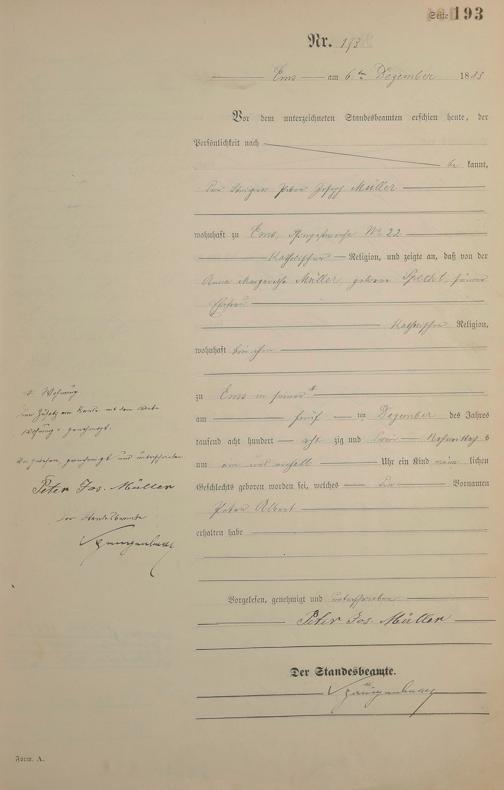 Seite 193
Nr. 193
Ems am 6ten Dezember 1883
Vor dem unterzeichneten Standesbeamten erschien heute, der
Persönlichkeit nach
be kannt,
der Steiger Peter Joseph Müller
wohnhaft zu Ems, Nr. 22
katholischer Religion, und zeigte an, daß von der
Anna Margaretha Müller, geborene Specht, seiner
Ehefrau
katholischer Religion,
wohnhaft bei ihm
zu Ems in seiner
am fünf ten Dezember des Jahres
tausend acht hundert acht zig und drei Nachmittags
um ein und einhalb Uhr ein Kind männ lichen
Geschlechts geboren worden sei, welches die Vornamen
Peter Albert
erhalten habe
+ Wohnung
den Zusatz am Rande mit dem Worte
"Wohnung" genehmigt.
Vorgelesen, genehmigt und unterschrieben
Peter Jos. Müller
Der Standesbeamte
Vorgelesen, genehmigt und unterschrieben
Peter Jos. Müller
Der Standesbeamte.
Form. A.